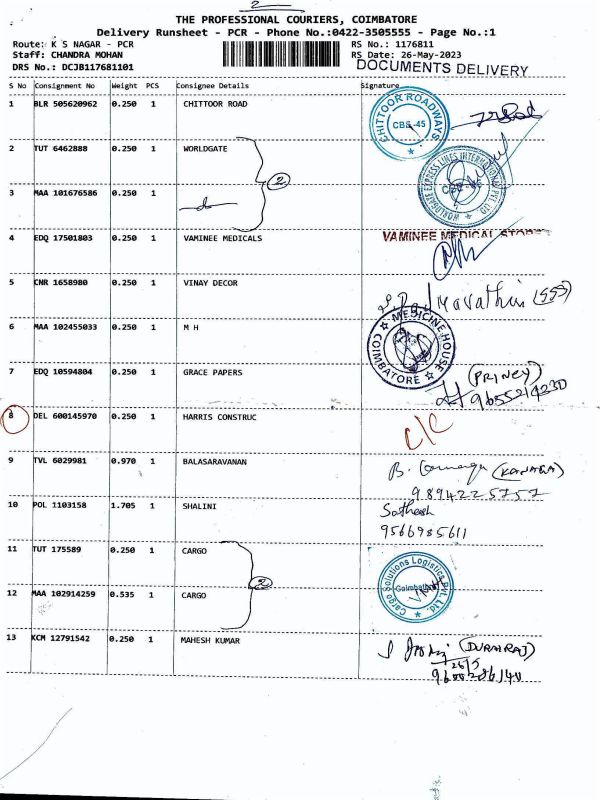 2
THE PROFESSIONAL COURIERS, COIMBATORE
Delivery Runsheet - PCR - Phone No.:0422-3505555 - Page No.:1
Route: K S NAGAR - PCR RS No.: 1176811
Staff: CHANDRA MOHAN RS Date: 26-May-2023
DRS No.: DCJB117681101 DOCUMENTS DELIVERY
S No Consignment No Weight PCS Consignee Details Signature
1 BLR 505620962 0.250 1 CHITTOOR ROAD
CHITTOOR ROADWAYS CBE-45
2 TUT 6462888 0.250 1 WORLDGATE
2
WORLDGATE EXPRESS LINES INTERNATIONAL PVT. LTD.
3 MAA 101676586 0.250 1
4 EDQ 17501803 0.250 1 VAMINEE MEDICALS VAMINEE MEDICAL STORES
5 CNR 1658980 0.250 1 VINAY DECOR
6 MAA 102455033 0.250 1 M H
MEDICINE HOUSE COIMBATORE
7 EDQ 10594804 0.250 1 GRACE PAPERS (PRINCY)
9655214230
8 DEL 600145970 0.250 1 HARRIS CONSTRUC C/C
9 TVL 6029981 0.970 1 BALASARAVANAN (KANAGA)
9894225757
10 POL 1103158 1.705 1 SHALINI Sathesh
9566985611
11 TUT 175589 0.250 1 CARGO
2
Cargo Solutions Logistics Pvt. Ltd. Coimbatore
12 MAA 102914259 0.535 1 CARGO
13 KCM 12791542 0.250 1 MAHESH KUMAR (DURAIRAJ)
26/5